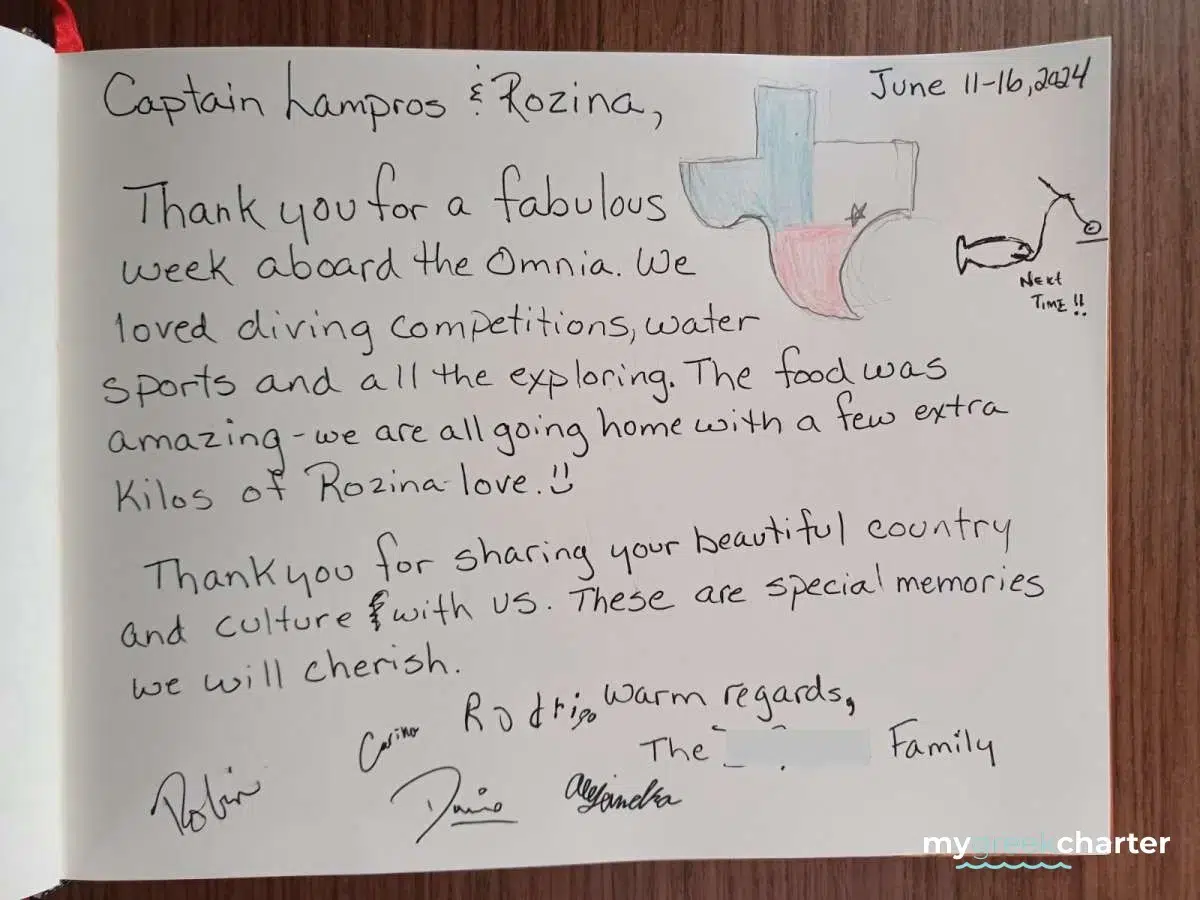 Captain Lampros & Rozina,
June 11-16, 2024
Thank you for a fabulous
week aboard the Omnia. We
loved diving competitions, water
sports and all the exploring. The food was
amazing - we are all going home with a few extra
Kilos of Rozina love.
Next
Time!!
Thank you for sharing your beautiful country
and culture & with us. These are special memories
we will cherish.
Rodrigo Warm regards,
Carina
The Family
Robin
Alejandra
mygreekcharter